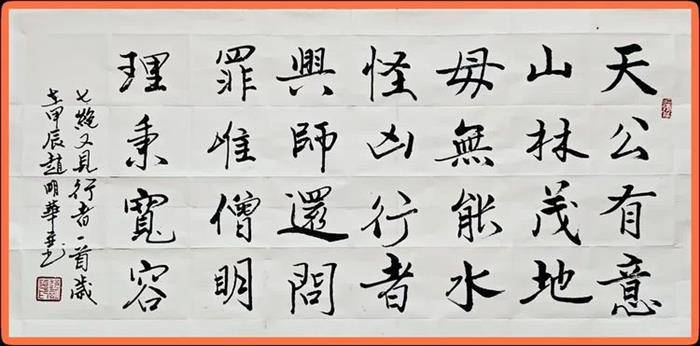 天公有意
山林茂地
毋無能水
怪凶行者
興師還問
罪唯僧明
理秉寬容
七絕又見行者一首歲
在甲辰趙明華書